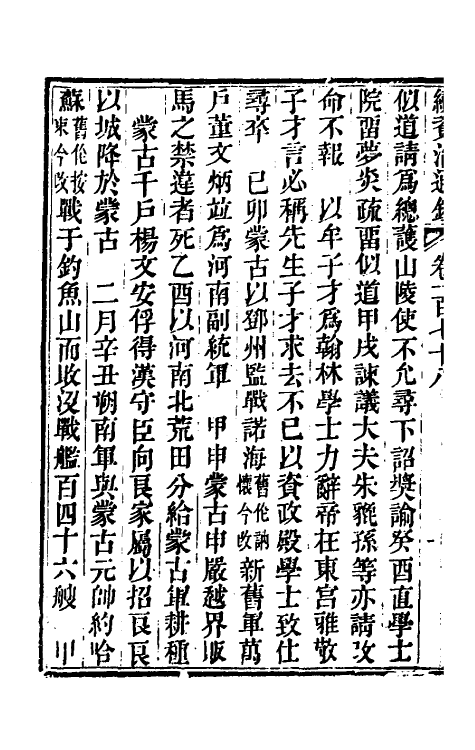 續資治通鑑 卷一百七十八
似道請爲總護山陵使不允尋下詔獎諭癸酉直學士
院畱夢炎疏畱似道甲戌諫議大夫朱貔孫等亦請攺
命不報 以牟子才爲翰林學士力辭帝在東宮雅敬
子才言必稱先生子才求去不已以資政殿學士致仕
尋卒 己卯蒙古以鄧州監戰諾海舊作訥懷今攺新舊軍萬
戶董文炳竝爲河南副統軍 甲申蒙古申嚴越界販
馬之禁違者死乙酉以河南北荒田分給蒙古軍耕種
蒙古千戶楊文安俘得漢守臣向良家屬以招良良
以城降於蒙古 二月辛丑朔南軍與蒙古元帥約哈
蘇舊作按東今攺戰于釣魚山而敗沒戰艦百四十六艘 甲